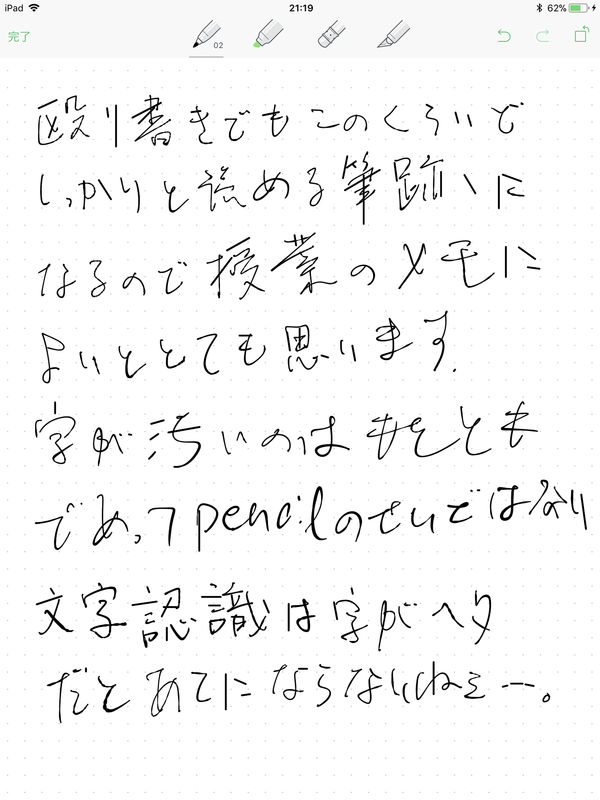 iPad 21:19 62%
完了
02
殴り書きでもこのくらいど
しっかりと読める筆跡いに
なるので授業のメモに
よいととても思います.
字が汚いのはもともと
であって pencilのせいではなり
文字認識は字がヘタ
だとあてにならないねぇ…。